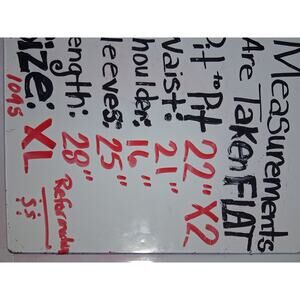 Measurements
Are Taken FLAT
Pit to Pit 22" X2
Waist: 21"
houlder: 16"
leeves: 25"
ength: 28"
ize: XL
1095